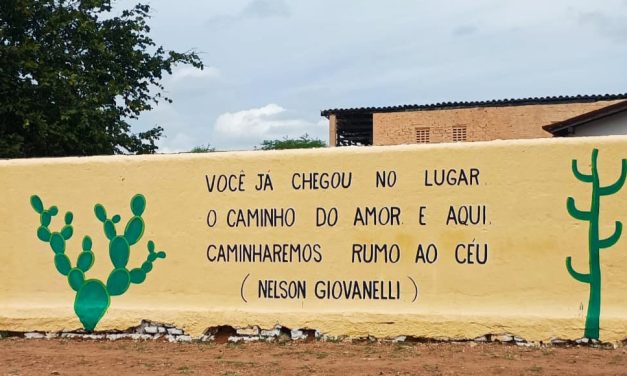 VOCÊ JÁ CHEGOU NO LUGAR.
O CAMINHO DO AMOR. E AQUI.
CAMINHAREMOS RUMO AO CÉU
( NELSON GIOVANELLI )